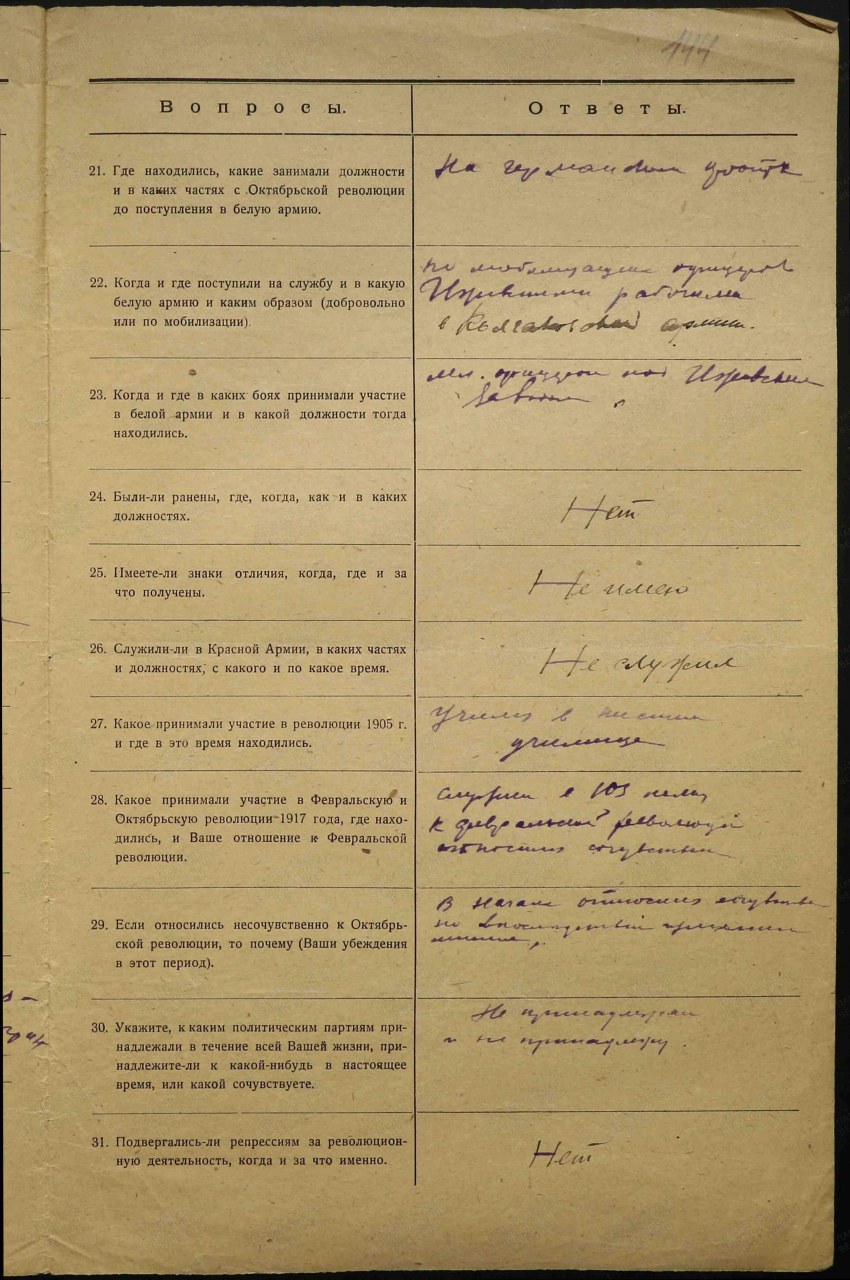 444
Вопросы.
Ответы.
21. Где находились, какие занимали должности
и в каких частях с Октябрьской революции
до поступления в белую армию.
На германском фронте
22. Когда и где поступили на службу и в какую
белую армию и каким образом (добровольно
или по мобилизации).
По мобилизации офицеров
Ижевскими рабочими
в Колчаковской армии.
23. Когда и где в каких боях принимали участие
в белой армии и в какой должности тогда
находились.
Мл. офицером под Ижевским
Заводом
24. Были-ли ранены, где, когда, как и в каких
должностях.
Нет
25. Имеете-ли знаки отличия, когда, где и за
что получены.
Не имею
26. Служили-ли в Красной Армии, в каких частях
и должностях, с какого и по какое время.
Не служил
27. Какое принимали участие в революции 1905 г.
и где в это время находились.
Учился в
училище
28. Какое принимали участие в Февральскую и
Октябрьскую революции 1917 года, где нахо-
дились, и Ваше отношение к Февральской
революции.
Служил в 103 полку
к февральской революции
относился сочувственно
29. Если относились несочувственно к Октябрь-
ской революции, то почему (Ваши убеждения
в этот период).
В начале относился сочувстве-
но впоследствии
30. Укажите, к каким политическим партиям при-
надлежали в течение всей Вашей жизни, при-
надлежите-ли к какой-нибудь в настоящее
время, или какой сочувствуете.
Не принадлежал
и не принадлежу.
31. Подвергались-ли репрессиям за революцион-
ную деятельность, когда и за что именно.
Нет